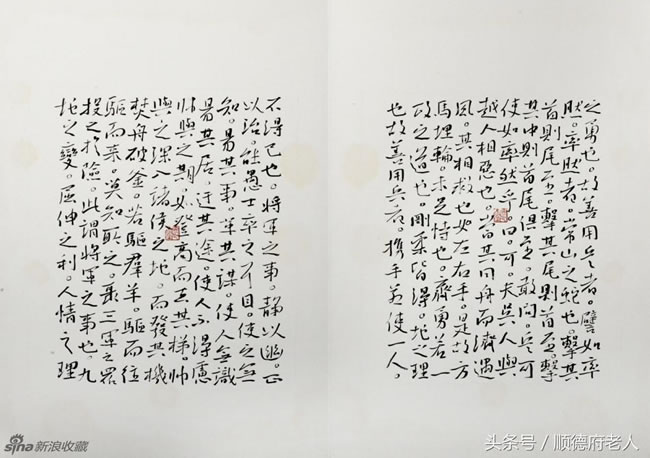 之勇也。故善用兵者。譬如率
然。率然者。常山之蛇也。擊其
首則尾至。擊其尾則首至。擊
其中則首尾俱至。敢問。兵可
使如率然乎。曰。可。夫吳人與
越人相惡也。當其同舟而濟遇
風。其相救也如左右手。是故方
馬埋輪。未足恃也。齊勇若一
政之道也。剛柔皆得。地之理
也。故善用兵者。攜手若使一人。
不得已也。將軍之事。靜以幽。正
以治。能愚士卒之耳目。使之無
知。易其事。革其謀。使人無識
易其居。迂其途。使人不得慮
帥與之期。如登高而去其梯。帥
與之深入諸侯之地。而發其機
焚舟破釜。若驅羣羊。驅而往
驅而來。莫知所之。聚三軍之眾
投之於險。此謂將軍之事也。九
地之變。屈伸之利。人情之理
sina新浪收藏
头条号／顺德府老人